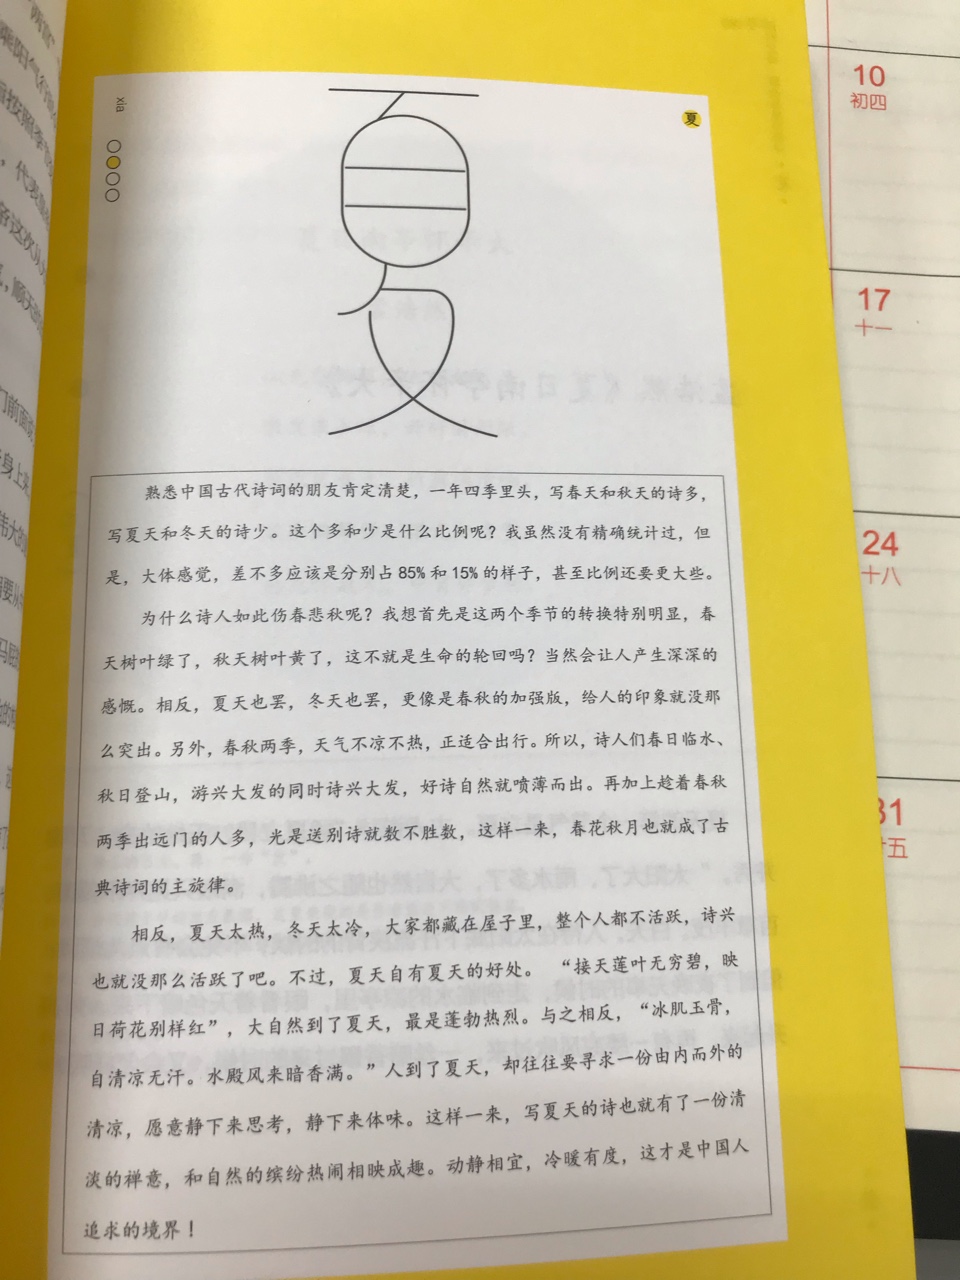 xia
夏
熟悉中国古代诗词的朋友肯定清楚，一年四季里头，写春天和秋天的诗多，
写夏天和冬天的诗少。这个多和少是什么比例呢？我虽然没有精确统计过，但
是，大体感觉，差不多应该是分别占85%和15%的样子，甚至比例还要更大些。
为什么诗人如此伤春悲秋呢？我想首先是这两个季节的转换特别明显，春
天树叶绿了，秋天树叶黄了，这不就是生命的轮回吗？当然会让人产生深深的
感慨。相反，夏天也罢，冬天也罢，更像是春秋的加强版，给人的印象就没那
么突出。另外，春秋两季，天气不凉不热，正适合出行。所以，诗人们春日临水、
秋日登山，游兴大发的同时诗兴大发，好诗自然就喷薄而出。再加上趁着春秋
两季出远门的人多，光是送别诗就数不胜数，这样一来，春花秋月也就成了古
典诗词的主旋律。
相反，夏天太热，冬天太冷，大家都藏在屋子里，整个人都不活跃，诗兴
也就没那么活跃了吧。不过，夏天自有夏天的好处。“接天莲叶无穷碧，映
日荷花别样红”，大自然到了夏天，最是蓬勃热烈。与之相反，“冰肌玉骨，
自清凉无汗。水殿风来暗香满。”人到了夏天，却往往要寻求一份由内而外的
清凉，愿意静下来思考，静下来体味。这样一来，写夏天的诗也就有了一份清
淡的禅意，和自然的缤纷热闹相映成趣。动静相宜，冷暖有度，这才是中国人
追求的境界！
10
初四
17
十一
24
十八
31
五